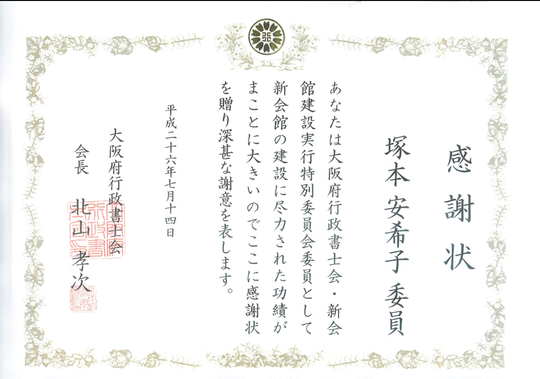 感謝状
塚本安希子 委員
あなたは大阪府行政書士会・新会
館建設実行特別委員会委員として
新会館の建設に尽力された功績が
まことに大きいのでここに感謝状
を贈り深甚な謝意を表します。
平成二十六年七月十四日
大阪府行政書士会
会長 北山孝次